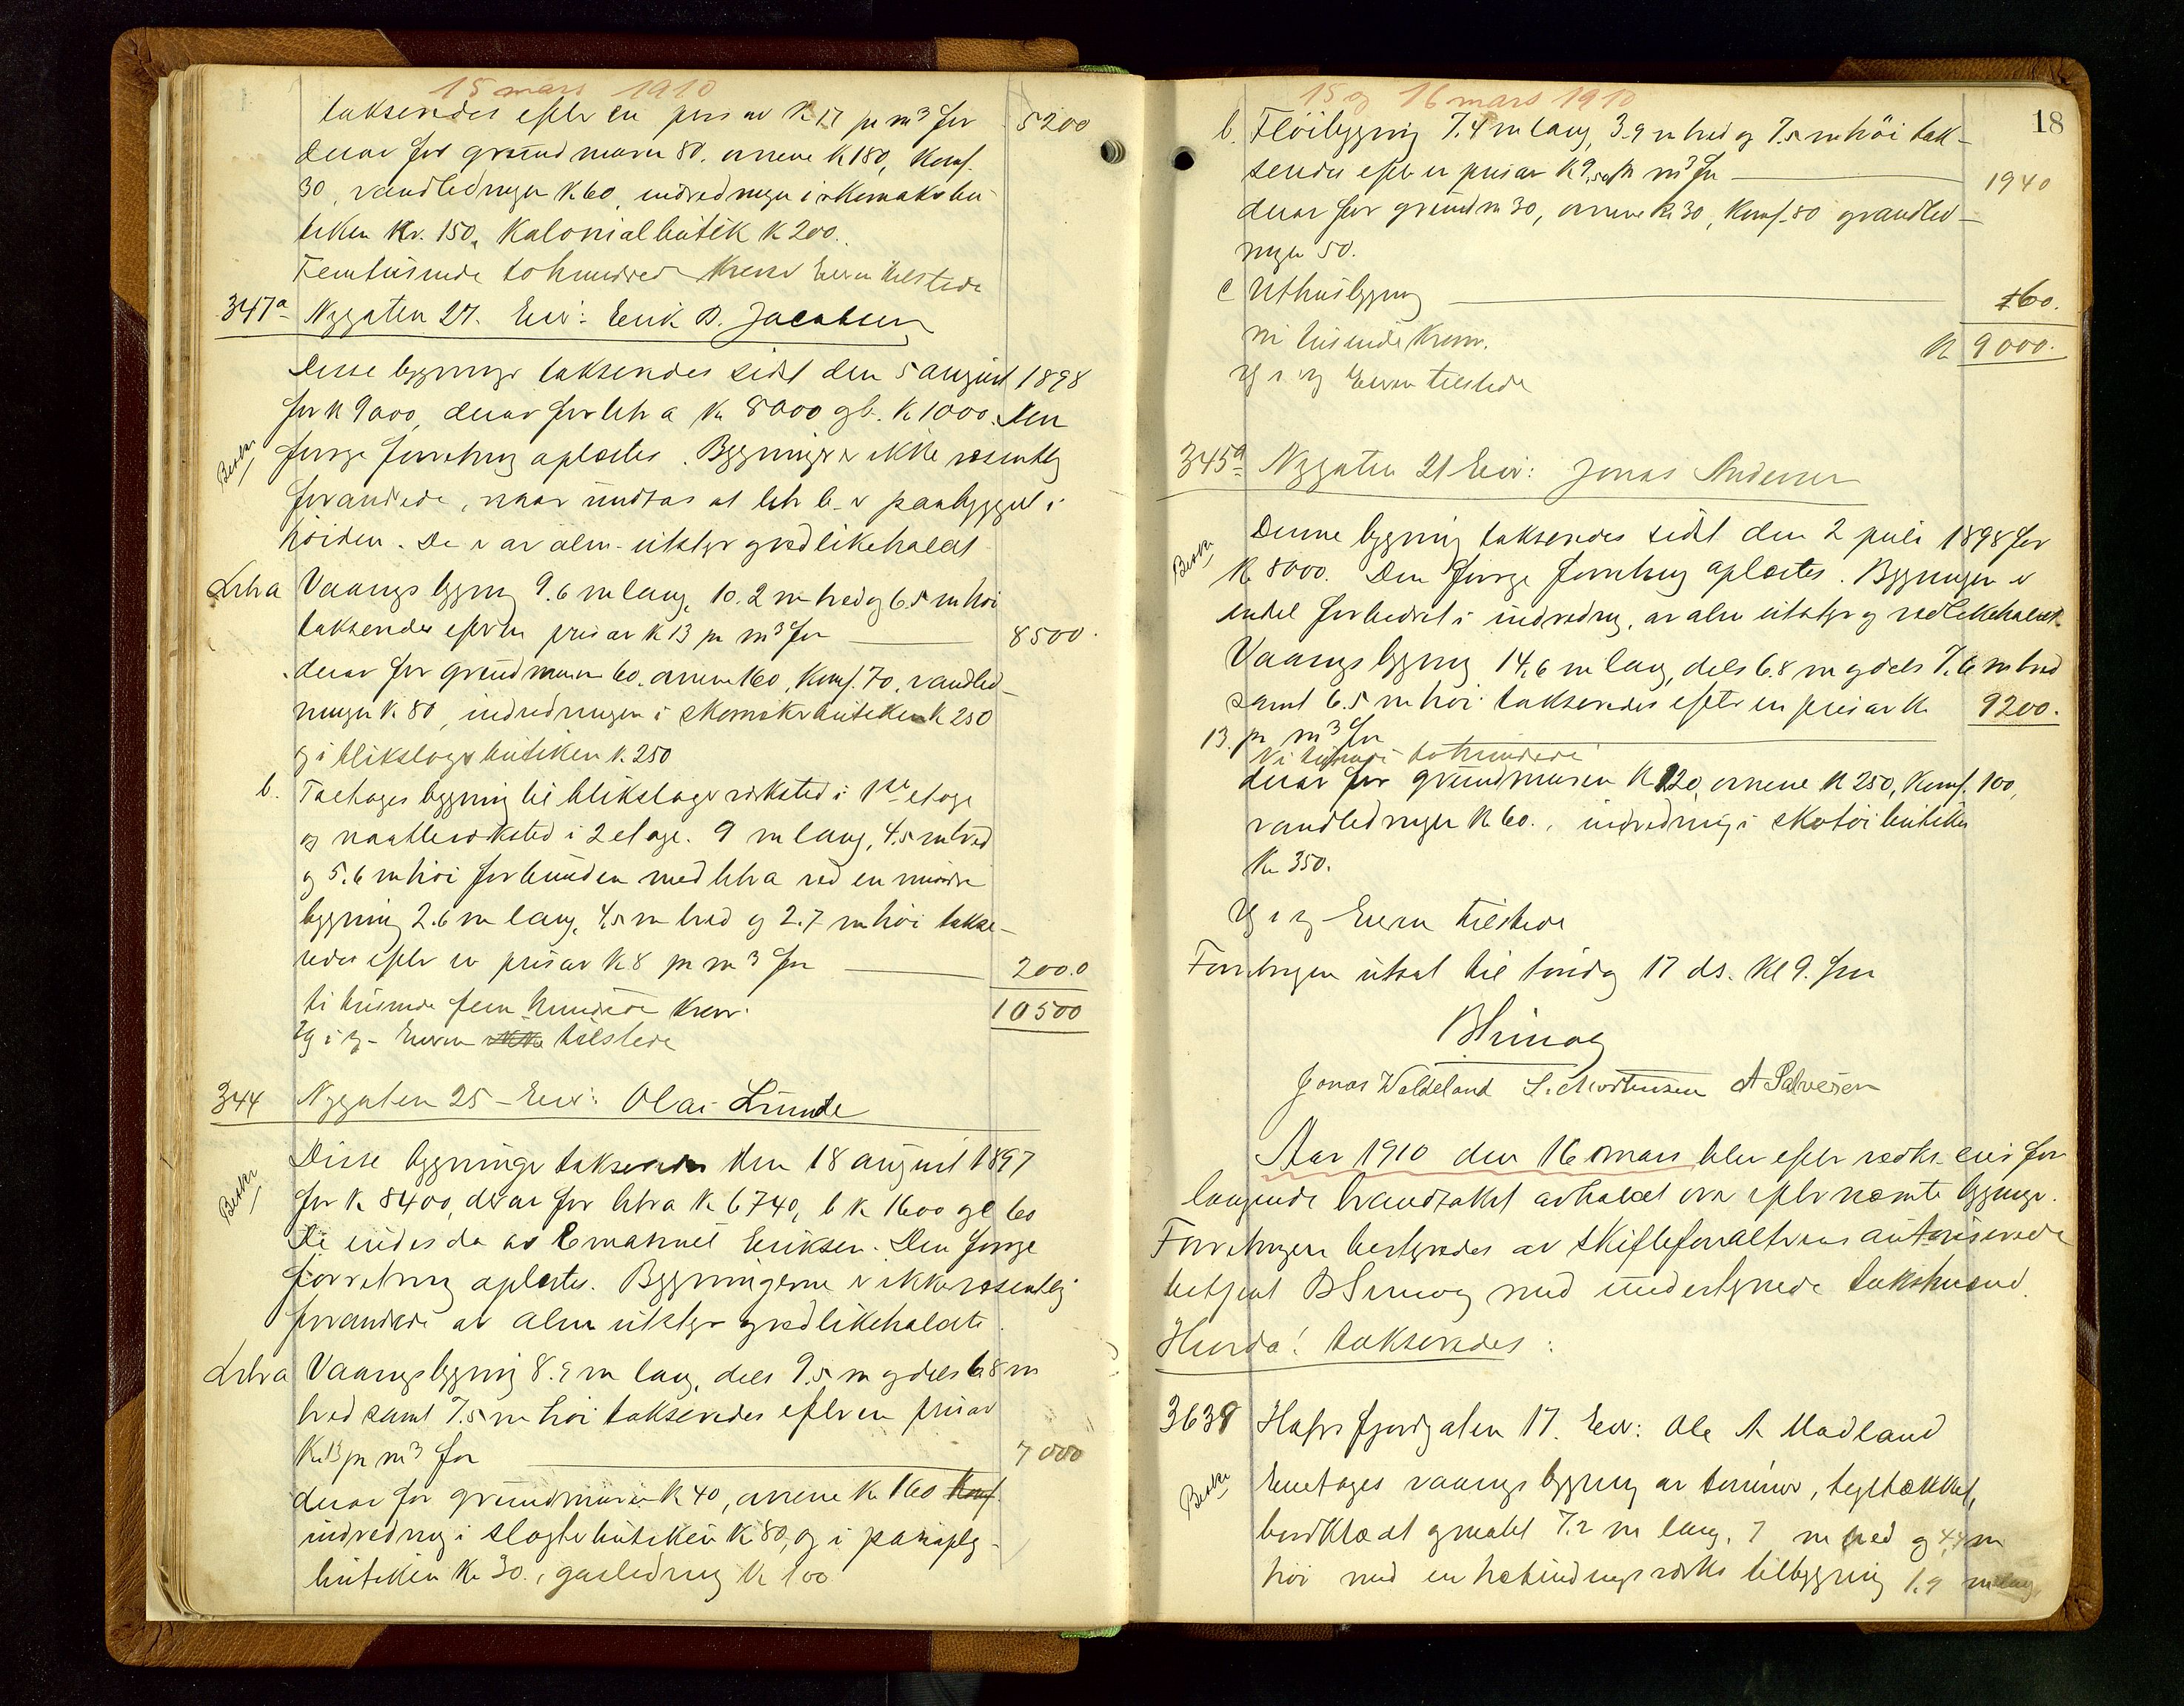 15 mars 1910
takseredes efter en pris av K 17 pr m3 for 5200
derav for grundmuren 80. ovnene K 180, Komf.
30, vandledningen K. 60, indredningen i skomakerbu-
tiken Kr. 150, Kolonialbutik K 200.
Femtusinde tohundrede Kroner Eieren tilstede
347a Nygaten 27. Eier: Erik B. Jacobsen
Disse bygninger takseredes sidst den 5 august 1898
for K 9000, derav for litr a Kr 8000 og b. K. 1000. Den
forrige forretning oplæstes. Bygningene er ikke væsentlig
forandrede, naar undtas at litr b er paabygget i
høiden. De er av alm. utstyr og vedlikeholdt
Litr a Vaanings bygning 9.6 m lang, 10.2 m bred og 6.5 m høi
takseredes efter en pris av K 13 pr m3 for 8500.
derav for grundmuren 60. ovnene 160, Komf. 70, vandled-
ningen K. 80, indredningen i skomakerbutiken K 250
og i blikslagerbutiken K. 250
b. Toetages bygning til blikslagerverksted i 1ste etage
og naatleverksted i 2 etage. 9 m lang, 4.5 m bred
og 5.6 m høi forbunden med litr a ved en mindre
bygning 2.6 m lang, 4,5 m bred og 2.7 m høi takse-
redes efter en pris av K 8 pr m3 for 2000
ti tusinde fem hundrede Kroner. 10500
Eieren ikke tilstede
344 Nygaten 25 - Eier: Olai Lunde
Besikt.
Disse bygninger takseredes den 18 august 1897
for K 8400, derav for litr a K 6740, b K 1600 og c 60
De eiedes da av Emanuel Eriksen. Den forrige
forretning oplæstes. Bygningerne er ikke væsentlig
forandrede av alm utstyr og vedlikeholdte.
Litr a Vaaningsbygning 8.9 m lang, dels 9.5 m og dels 6.8 m
bred samt 7.5 m høi takseredes efter en pris av
K. 13 pr m3 for 7000
derav for grundmuren K 40, ovnene K 160 Komf.
indredning i slagterbutiken K. 80, og i paraply-
butiken K. 30., gasledning K 100
15 og 16 mars 1910
18
b. Fløibygning 7.4 m lang, 3.9 m bred og 7.5 m høi tak-
seredes efter en pris av K 9,50 pr m3 for 1940
derav for grundm 30, ovnene K. 30, Komf. 80 og vandled-
ningen 50.
c Uthusbygning 60.
ni tusinde Kroner. K 9000.
Eieren tilstede
345a Nygaten 21 Eier: Jonas Andersen
Denne bygning takseredes sidst den 2 juli 1898 for
K. 8000. Den forrige forretning oplæstes. Bygningen er
endel forbedret i indredning, av alm utstyr og vedlikeholdt.
Vaanings bygning 14,6 m lang, dels 6.8 m og dels 7.6 m bred
samt 6.5 m høi takseredes efter en pris av K. 9200.
13. pr m3 for
Ni tusinde tohundrede
derav for grundmuren K 120, ovnene K 250, Komf. 100,
vandledningen K. 60., indredning i skotøibutiken
K. 350.
Eieren tilstede
Forretningen utsat til torsdag 17 ds. Kl 9. fm
Jonas Waldeland S. Mortensen A Salvesen
Aar 1910 den 16 mars blev efter vedk. eieres for
langende brandtakst avholdt over efternævnte bygninger.
Forretningen bestyredes av skifteforvalterens autoriserede
betjent med undertegnede takstmænd.
Hvorda! takseredes:
3638 Hafrsfjordgaten 17. Eier: Ole A. Madland
Besikt.
Enetages vaanings bygning av tømmer, tegltækket,
bordklædt og malet 7.2 m lang, 7 m bred og 4,4 m
høi med en bebindingsverks tilbygning 1.9 m lang